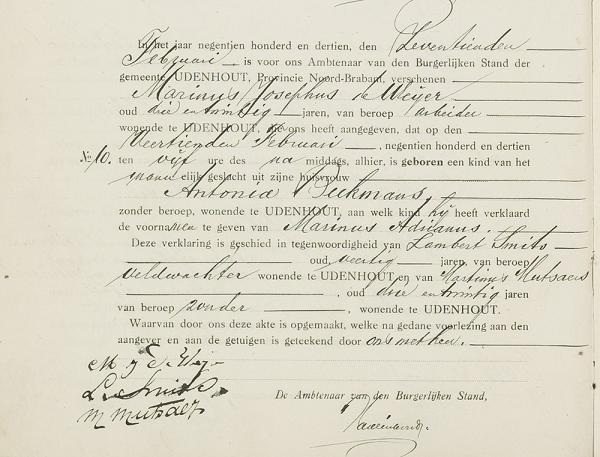 In het jaar negentien honderd en dertien, den Zeventienden
Februari is voor ons Ambtenaar van den Burgerlijken Stand der
gemeente UDENHOUT, Provincie Noord-Brabant, verschenen
Marinus Josephus de Weijer
oud drie en twintig jaren, van beroep arbeider
wonende te UDENHOUT, die ons heeft aangegeven, dat op den
Veertienden Februari, negentien honderd en dertien
No. 10. ten vijf ure des na middags, alhier, is geboren een kind van het
mannelijk geslacht uit zijne huisvrouw
Antonia Beekmans,
zonder beroep, wonende te UDENHOUT, aan welk kind hij heeft verklaard
de voornamen te geven van Marinus Adrianus.
Deze verklaring is geschied in tegenwoordigheid van Lambert Smits
oud veertig jaren, van beroep
veldwachter wonende te UDENHOUT en van Martinus Mutsaers
, oud drie en twintig jaren
van beroep zonder, wonende te UDENHOUT.
Waarvan door ons deze akte is opgemaakt, welke na gedane voorlezing aan den
aangever en aan de getuigen is geteekend door ons met hen.
M J d Weijer
L. Smits
M Mutsaers
De Ambtenaar van den Burgerlijken Stand,